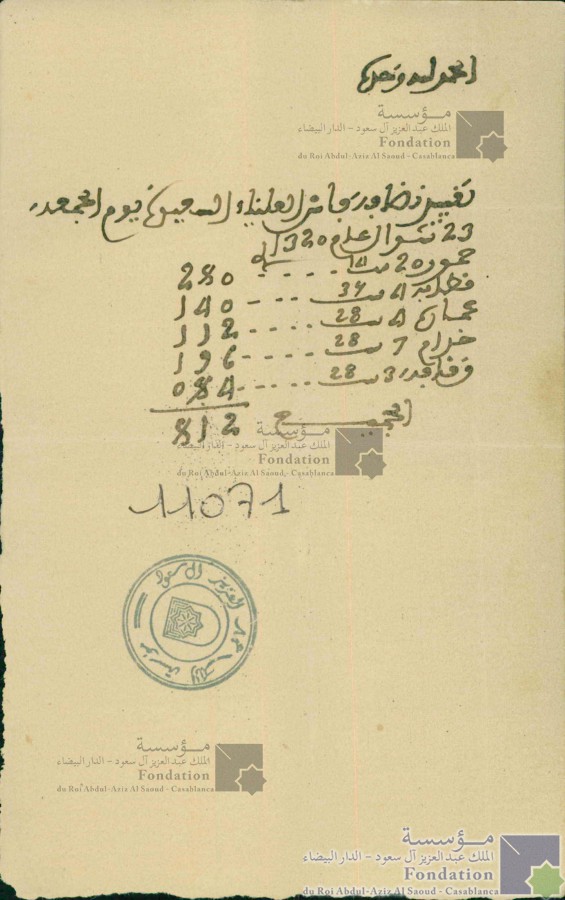 الحمد لله وحده
مؤسسة
الملك عبد العزيز آل سعود - الدار البيضاء
Fondation
du Roi Abdul-Aziz Al Saoud - Casablanca
تقييد العلياء السعيدة يوم الجمعة
23 شوال عام 1320
20 14 280
4 34 140
4 28 112
خدام 7 28 196
3 28 084
الجميع 812
مؤسسة
الملك عبد العزيز آل سعود - الدار البيضاء
Fondation
du Roi Abdul-Aziz Al Saoud - Casablanca
11071
مؤسسة الملك عبد العزيز آل سعود
مؤسسة
الملك عبد العزيز آل سعود - الدار البيضاء
Fondation
du Roi Abdul-Aziz Al Saoud - Casablanca
مؤسسة
الملك عبد العزيز آل سعود - الدار البيضاء
Fondation
du Roi Abdul-Aziz Al Saoud - Casablanca